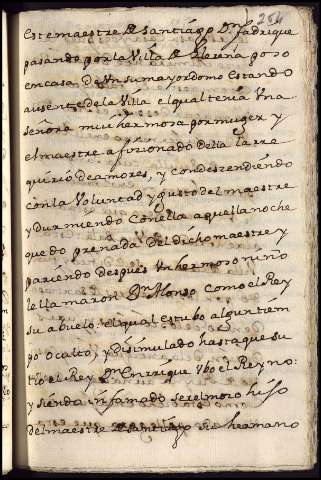 254
Este maestre de Santiago Dn fadrique
pasando por la Villa de llerena poso
en casa de Un su mayordomo estando
ausente de la Villa el qual tenia Una
señora mui hermosa por muger y
el maestre afizionado della la rre
quirio de amores, y condeszendiendo
con la Voluntad y gusto del maestre
y durmiendo con ella aquella noche
quedo preñada del dicho maestre y
pariendo despues Un hermoso niño
le llamaron Dn Alonso como el Rey
su abuelo: el qual estubo algun tiem
po oculto, y disimulado hasta que su
tio el Rey Dn Enrrique Ubo el Reyno:
y siendo infamado ser el moro hijo
del maestre de santiago su hermano